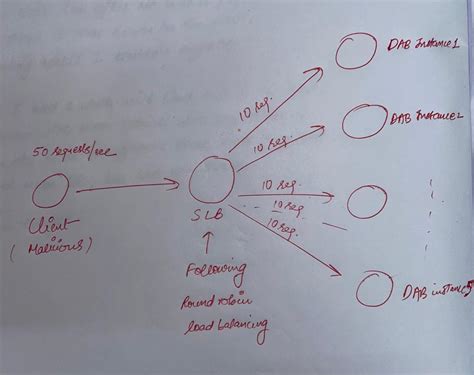 DAB Instance1
10 req.
DAB Instance2
10 req.
50 requests/sec
10 req.
10 req.
10 req.
Client
(Malicious)
SLB
Following
Round robin
load balancing
DAB instance5